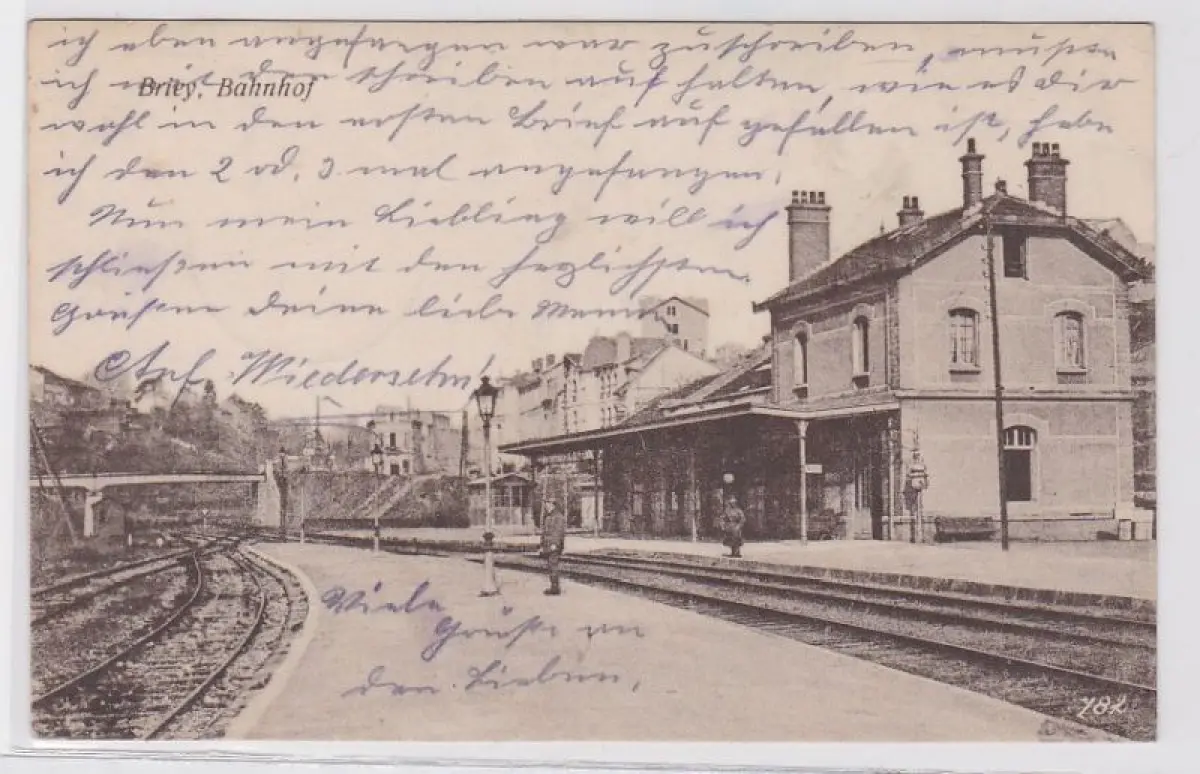 ich eben angefangen war zuschreiben, mußte
ich mit der schreiben auf halten, wie es dir
Briey, Bahnhof
wohl in den ersten Brief auf gefallen ist, habe
ich den 2 od. 3 mal angefangen.
Nun mein Liebling will ich
schließen mit den herzlichsten
Grüßen deine liebe
Auf Wiedersehn!
Viele
Grüße an
den Lieben,
782